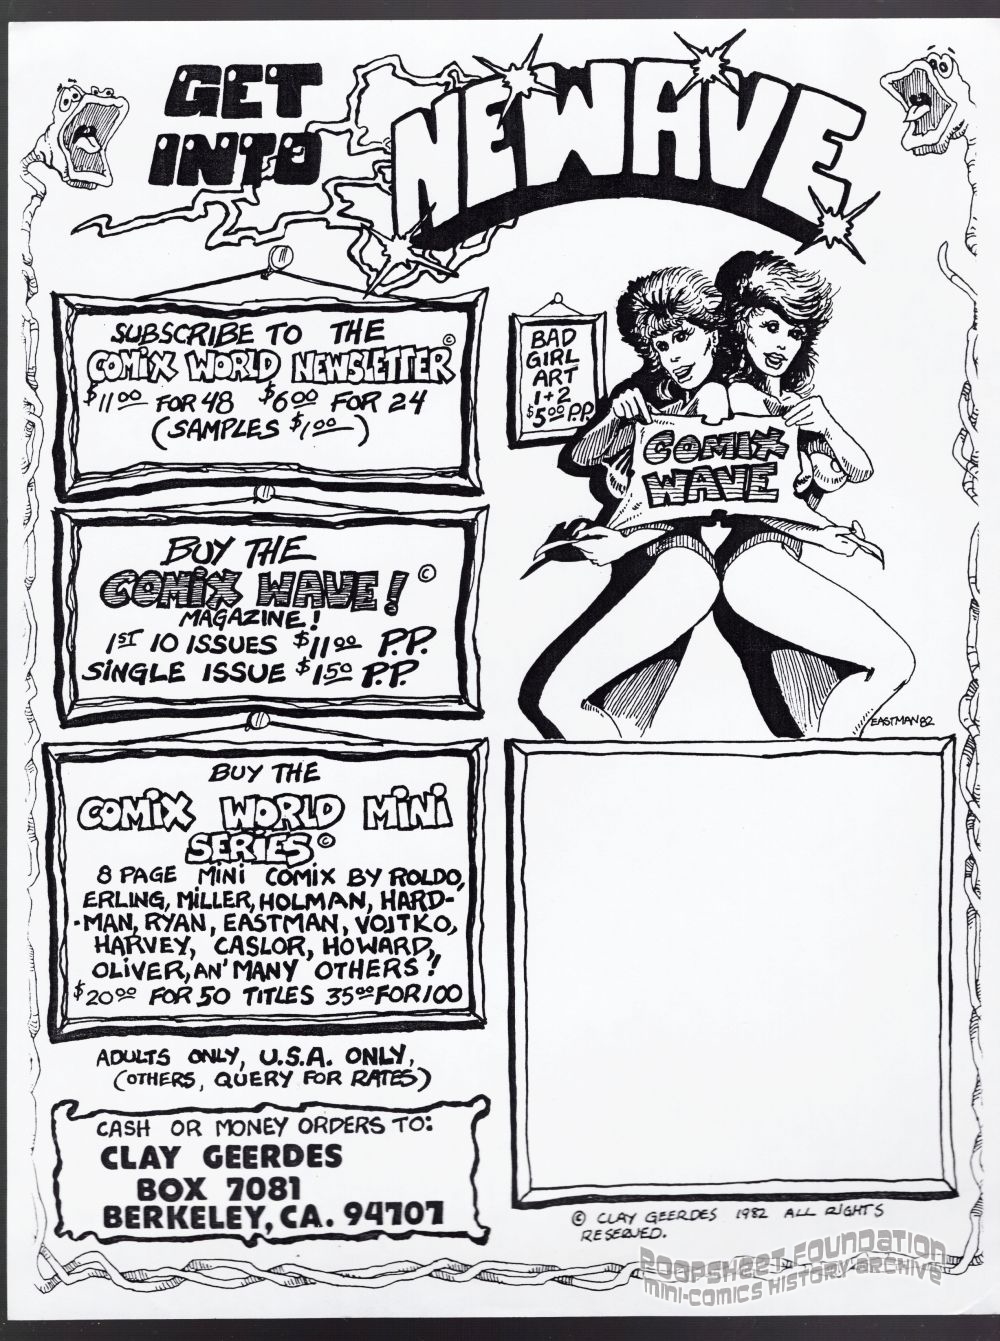 GET
INTO
NEWAVE
SUBSCRIBE TO THE
COMIX WORLD NEWSLETTER©
$11.00 FOR 48 $6.00 FOR 24
(SAMPLES $1.00)
BAD
GIRL
ART
1+2
$5.00 P.P.
COMIX
WAVE
BUY THE
COMIX WAVE! ©
MAGAZINE!
1ST 10 ISSUES $11.00 P.P.
SINGLE ISSUE $1.50 P.P.
EASTMAN 82
BUY THE
COMIX WORLD MINI
SERIES©
8 PAGE MINI COMIX BY ROLDO,
ERLING, MILLER, HOLMAN, HARD-
-MAN, RYAN, EASTMAN, VOJTKO,
HARVEY, CASLOR, HOWARD,
OLIVER, AN' MANY OTHERS!
$20.00 FOR 50 TITLES 35.00 FOR 100
ADULTS ONLY, U.S.A. ONLY,
(OTHERS, QUERY FOR RATES)
CASH OR MONEY ORDERS TO:
CLAY GEERDES
BOX 7081
BERKELEY, CA. 94707
© CLAY GEERDES 1982 ALL RIGHTS
RESERVED.
POOPSHEET FOUNDATION
MINI-COMICS HISTORY ARCHIVE